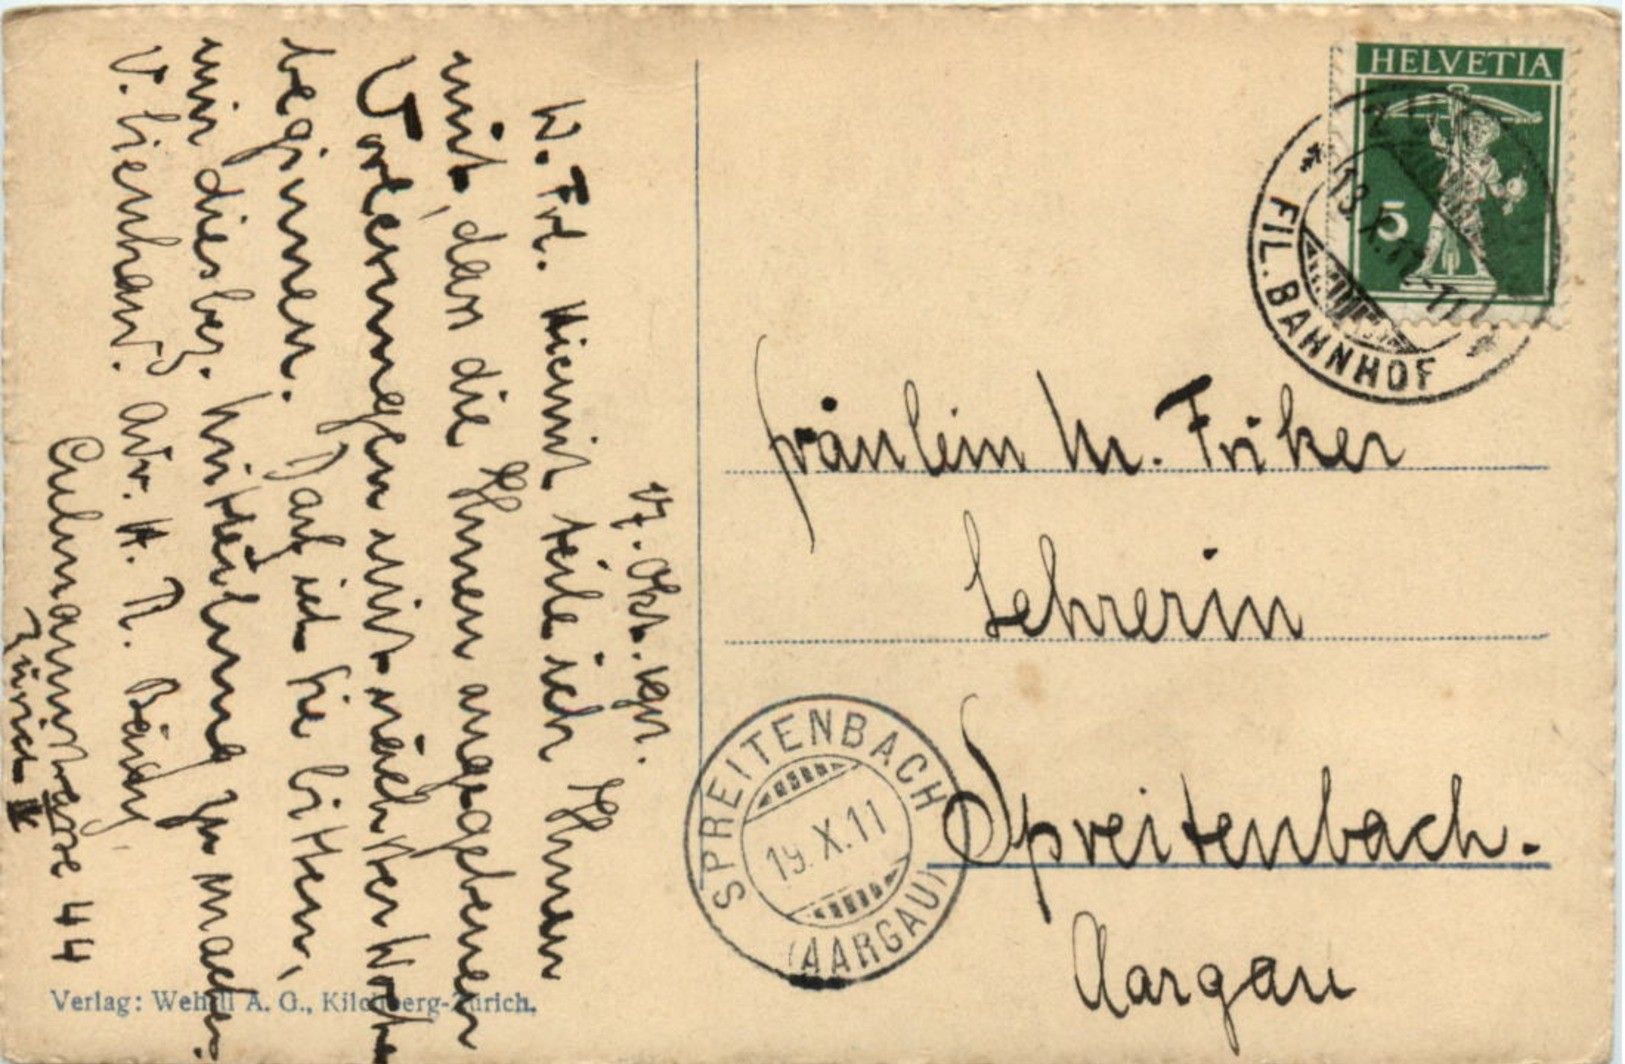 17. Okt. 1911.
W. Frl. Hiemit teile ich Ihnen
mit, dass die Ihnen angegebenen
Vorlesungen mit nächster Woche
beginnen. Darf ich Sie bitten,
mir diesbez. Mitteilung zu mach.
Adr. H. R.
Culmannstrasse 44
Zürich IV
Verlag: Wehrli A. G., Kilchberg-Zürich.
HELVETIA
5
FIL. BAHNHOF
Fräulein M. Friker
Lehrerin
Spreitenbach.
Aargau
SPREITENBACH
19.X.11
(AARGAU)